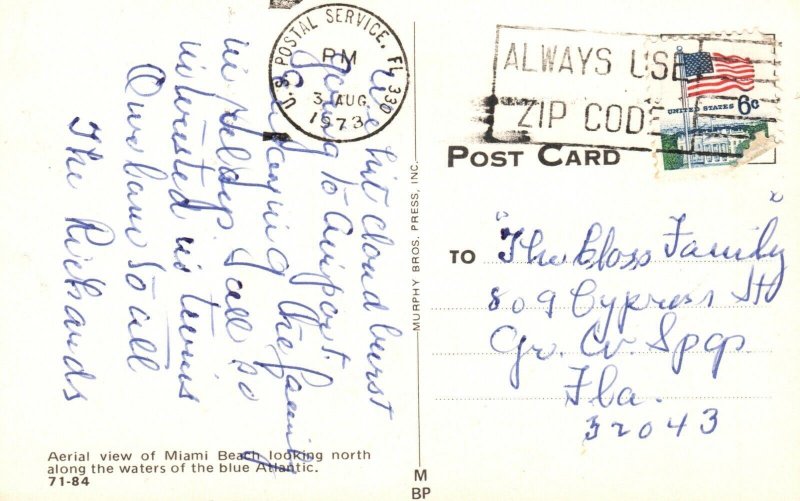 U.S. POSTAL SERVICE, FL 330
PM
3 AUG
1973
ALWAYS USE
ZIP CODE
UNITED STATES 6¢
POST CARD
We hit cloud burst
going to airport.
Enjoying the family
in Hldys. all so
interested in tennis
Our love to all
The Richards
MURPHY BROS. PRESS, INC.
TO "The Bloss Family"
809 Cypress St
Gr. Cv. Spgs.
Fla.
32043
Aerial view of Miami Beach looking north
along the waters of the blue Atlantic.
71-84
M
BP